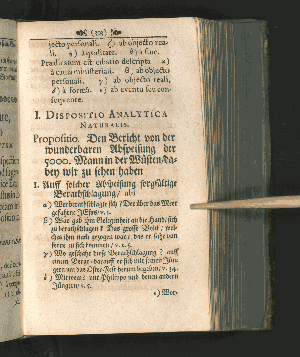 (323)
jecto personali. ζ) ab objecto rea-
li. η) à qualitate. θ) à fine.
Prædicatum est cibatio descripta α)
à causa ministeriali. β) ab objecto
personali. γ) ab objecto reali.
δ) à formâ. ε) ab eventu seu con-
sequente.
I. DISPOSITIO ANALYTICA
NATURALIS.
Propositio. Den Bericht von der
wunderbaren Abspeisung der
5000. Mann in der Wüsten/da-
bey wir zu sehen haben
I. Auff solcher Abspeisung sorgfältige
Berathschlagung/ ubi
α) Wer berathschlaget sich? Der über das Meer
gefahrne JEsus/ v. 1.
β) Was gab ihm Gelegenheit an die Hand/sich
zu berathschlagen? Das grosse Volck/ wel-
ches ihm nach gezogen war/ und er sahe von
ferne zu sich kommen/ v. 2. 5.
γ) Wo geschahe diese Berathschlagung? auff
einem Berge/ darauff er sich mit seinen Jün-
gern um das Oster-Fest herum begeben/ v. 3. 4.
δ) Mit wem? mit Philippo und denen andern
Jüngern/ v. 5.
ε) Wor-